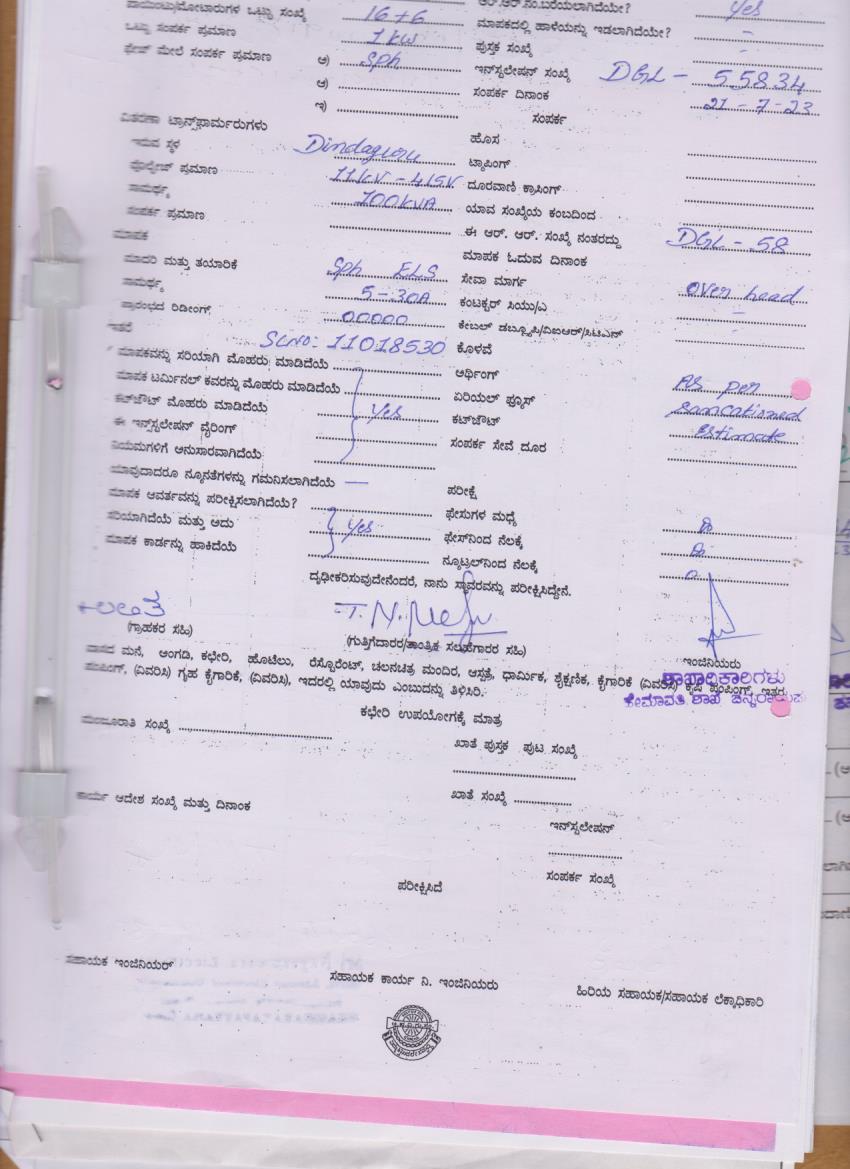 ಪಾಯಿಂಟು/ಮೋಟಾರುಗಳ ಒಟ್ಟು ಸಂಖ್ಯೆ 16+6
ಆರ್.ಆರ್.ನಂ.ಬರೆಯಲಾಗಿದೆಯೇ? yes
ಒಟ್ಟು ಸಂಪರ್ಕ ಪ್ರಮಾಣ 1 KW
ಮಾಪಕದಲ್ಲಿ ಹಾಳೆಯನ್ನು ಇಡಲಾಗಿದೆಯೇ? -
ಫೇಜ್ ಮೇಲೆ ಸಂಪರ್ಕ ಪ್ರಮಾಣ ಅ) Sph
ಪುಸ್ತಕ ಸಂಖ್ಯೆ -
ಇನ್‌ಸ್ಟಲೇಷನ್ ಸಂಖ್ಯೆ DGL - 55834
ಆ)
ಸಂಪರ್ಕ ದಿನಾಂಕ 21-7-23
ಇ)
ಸಂಪರ್ಕ
ವಿತರಣಾ ಟ್ರಾನ್ಸ್‌ಫಾರ್ಮರುಗಳು
ಹೊಸ
ಇರುವ ಸ್ಥಳ Dindaguru
ಟ್ಯಾಪಿಂಗ್
ವೋಲ್ಟೇಜ್ ಪ್ರಮಾಣ 11KV - 415V
ದೂರವಾಣಿ ಕ್ರಾಸಿಂಗ್
ಸಾಮರ್ಥ್ಯ 100KVA
ಯಾವ ಸಂಖ್ಯೆಯ ಕಂಬದಿಂದ
ಸಂಪರ್ಕ ಪ್ರಮಾಣ
ಈ ಆರ್. ಆರ್. ಸಂಖ್ಯೆ ನಂತರದ್ದು DGL - 58
ಮಾಪಕ
ಮಾಪಕ ಓದುವ ದಿನಾಂಕ
ಮಾದರಿ ಮತ್ತು ತಯಾರಿಕೆ Sph ELS
ಸೇವಾ ಮಾರ್ಗ Over head
ಸಾಮರ್ಥ್ಯ 5-30A
ಕಂಟಕ್ಟರ್ ಸಿಯು/ಎ -
ಪ್ರಾರಂಭದ ರಿಡೀಂಗ್ 00000
ಕೇಬಲ್ ಡಬ್ಲ್ಯೂಪಿ/ವಿಐಆರ್/ಸಿಟಿಎನ್ -
ಇತರೆ SL NO: 11018530
ಕೊಳವೆ
ಮಾಪಕವನ್ನು ಸರಿಯಾಗಿ ಮೊಹರು ಮಾಡಿದೆಯೆ
ಅರ್ಥಿಂಗ್ As per
ಮಾಪಕ ಟರ್ಮಿನಲ್ ಕವರನ್ನು ಮೊಹರು ಮಾಡಿದೆಯೆ
ಏರಿಯಲ್ ಫ್ಯೂಸ್ Sancationed
ಕಟ್‌ಔಟ್ ಮೊಹರು ಮಾಡಿದೆಯೆ yes
ಕಟ್‌ಔಟ್ Estimate
ಈ ಇನ್‌ಸ್ಟಲೇಷನ್ ವೈರಿಂಗ್
ಸಂಪರ್ಕ ಸೇವೆ ದೂರ
ನಿಯಮಗಳಿಗೆ ಅನುಸಾರವಾಗಿದೆಯೆ
ಯಾವುದಾದರೂ ನ್ಯೂನತೆಗಳನ್ನು ಗಮನಿಸಲಾಗಿದೆಯೆ —
ಪರೀಕ್ಷೆ
ಮಾಪಕ ಆವರ್ತವನ್ನು ಪರೀಕ್ಷಿಸಲಾಗಿದೆಯೆ?
ಫೇಸುಗಳ ಮಧ್ಯೆ
ಸರಿಯಾಗಿದೆಯೆ ಮತ್ತು ಅದು yes
ಫೇಸ್‌ನಿಂದ ನೆಲಕ್ಕೆ
ಮಾಪಕ ಕಾರ್ಡನ್ನು ಹಾಕಿದೆಯೆ
ನ್ಯೂಟ್ರಲ್‌ನಿಂದ ನೆಲಕ್ಕೆ
ದೃಢೀಕರಿಸುವುದೇನೆಂದರೆ, ನಾನು ಸ್ಥಾವರವನ್ನು ಪರೀಕ್ಷಿಸಿದ್ದೇನೆ.
(ಗ್ರಾಹಕರ ಸಹಿ)
(ಗುತ್ತಿಗೆದಾರರ/ತಾಂತ್ರಿಕ ಸಲಹೆಗಾರರ ಸಹಿ)
ಇಂಜಿನಿಯರು
ಶಾಖಾಧಿಕಾರಿಗಳು
ವಾಸದ ಮನೆ, ಅಂಗಡಿ, ಕಛೇರಿ, ಹೊಟೇಲು, ರೆಸ್ಟೋರೆಂಟ್, ಚಲನಚಿತ್ರ ಮಂದಿರ, ಆಸ್ಪತ್ರೆ, ಧಾರ್ಮಿಕ, ಶೈಕ್ಷಣಿಕ, ಕೈಗಾರಿಕೆ (ವಿವರಿಸಿ) ಕೃಷಿ ಪಂಪಿಂಗ್, ಇತರ
ಪಂಪಿಂಗ್, (ವಿವರಿಸಿ) ಗೃಹ ಕೈಗಾರಿಕೆ, (ವಿವರಿಸಿ), ಇದರಲ್ಲಿ ಯಾವುದು ಎಂಬುದನ್ನು ತಿಳಿಸಿರಿ.
ಹೇಮಾವತಿ ಶಾಖೆ ಚನ್ನರಾಯಪ
ಕಛೇರಿ ಉಪಯೋಗಕ್ಕೆ ಮಾತ್ರ
ಮಂಜೂರಾತಿ ಸಂಖ್ಯೆ
ಖಾತೆ ಪುಸ್ತಕ ಪುಟ ಸಂಖ್ಯೆ
ಕಾರ್ಯ ಆದೇಶ ಸಂಖ್ಯೆ ಮತ್ತು ದಿನಾಂಕ
ಖಾತೆ ಸಂಖ್ಯೆ
ಇನ್‌ಸ್ಟಲೇಷನ್
ಸಂಪರ್ಕ ಸಂಖ್ಯೆ
ಪರೀಕ್ಷಿಸಿದೆ
ಸಹಾಯಕ ಇಂಜಿನಿಯರ್
ಸಹಾಯಕ ಕಾರ್ಯ ನಿ. ಇಂಜಿನಿಯರು
ಹಿರಿಯ ಸಹಾಯಕ/ಸಹಾಯಕ ಲೆಕ್ಕಾಧಿಕಾರಿ